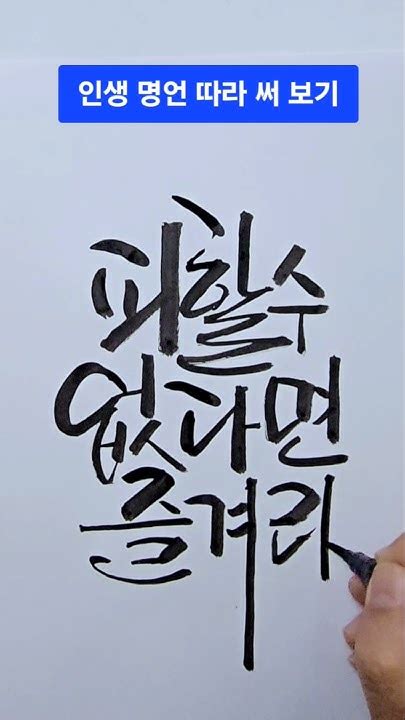 인생 명언 따라 써 보기
피할수
없다면
즐겨라